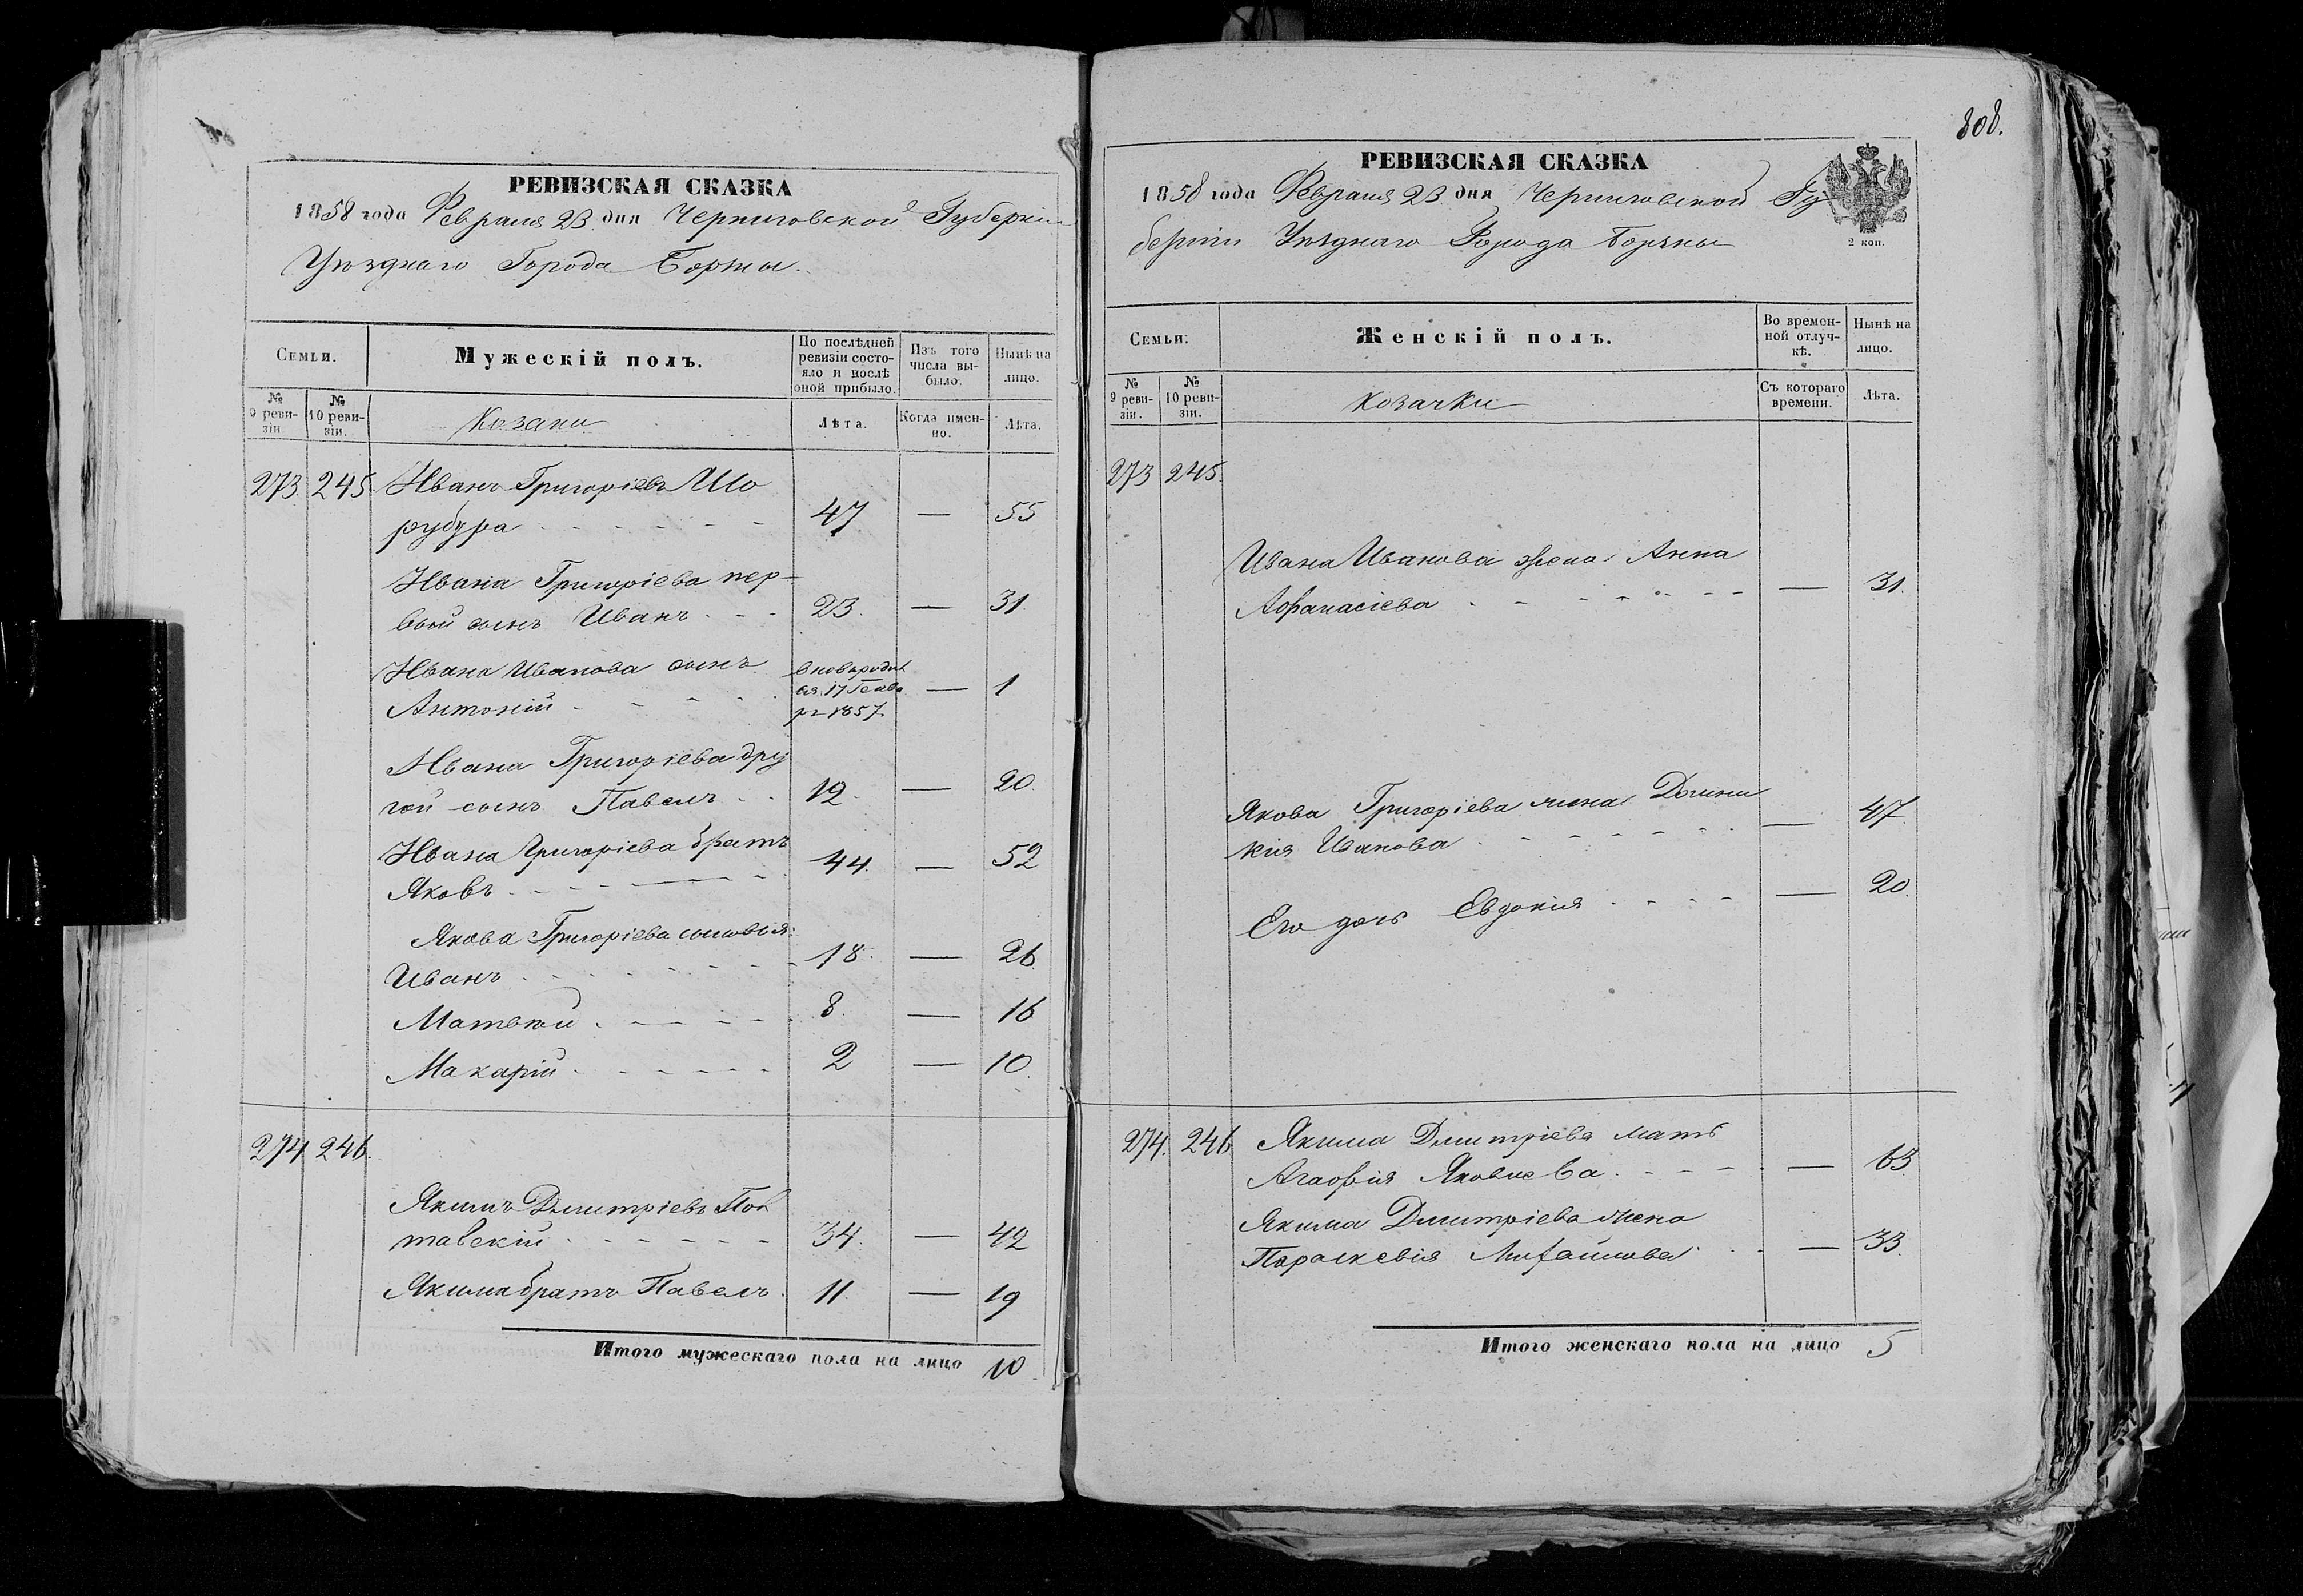 808.
РЕВИЗСКАЯ СКАЗКА
1858 года Февраля 23 дня Черниговской Губерніи
Уѣзднаго Города Борзны.
Семьи.
Мужескій полъ.
По послѣдней ревизіи состояло и послѣ оной прибыло.
Изъ того числа выбыло.
Нынѣ на лицо.
№ 9 ревизіи
№ 10 ревизіи.
Козаки
Лѣта.
Когда именно.
Лѣта.
273 245 Иванъ Григоріевъ Шо
рубура 47 — 55
Ивана Григоріева пер-
вый сынъ Иванъ 23. — 31.
Ивана Иванова сынъ вновь родил
Антоній ся 17 Генва — 1
ря 1857.
Ивана Григоріева дру
гой сынъ Павелъ 12 — 20.
Ивана Григоріева братъ 44. — 52
Яковъ
Якова Григоріева сыновья:
Иванъ 18. — 26.
Матвѣй 8. — 16
Макарій 2 — 10.
274 246.
Якимъ Дмитріевъ Пол
тавскій 34. — 42
Якима братъ Павелъ. 11. — 19
Итого мужескаго пола на лицо 10
РЕВИЗСКАЯ СКАЗКА
1858 года Февраля 23 дня Черниговской Гу
берніи Уѣзднаго Города Борзны
2 коп.
Семьи.
Женскій полъ.
Во временной отлучкѣ.
Нынѣ на лицо.
№ 9 ревизіи.
№ 10 ревизіи.
Козачки
Съ котораго времени.
Лѣта.
273 245.
Ивана Иванова жена Анна
Афанасіева — 31.
Якова Григоріева жена 47.
кія Иванова —
Его дочь Евдокія — 20.
274. 246 Якима Дмитріева мать
Агафія Яковлева — 63
Якима Дмитріева жена
Параскевія Михайлова — 33.
Итого женскаго пола на лицо 5